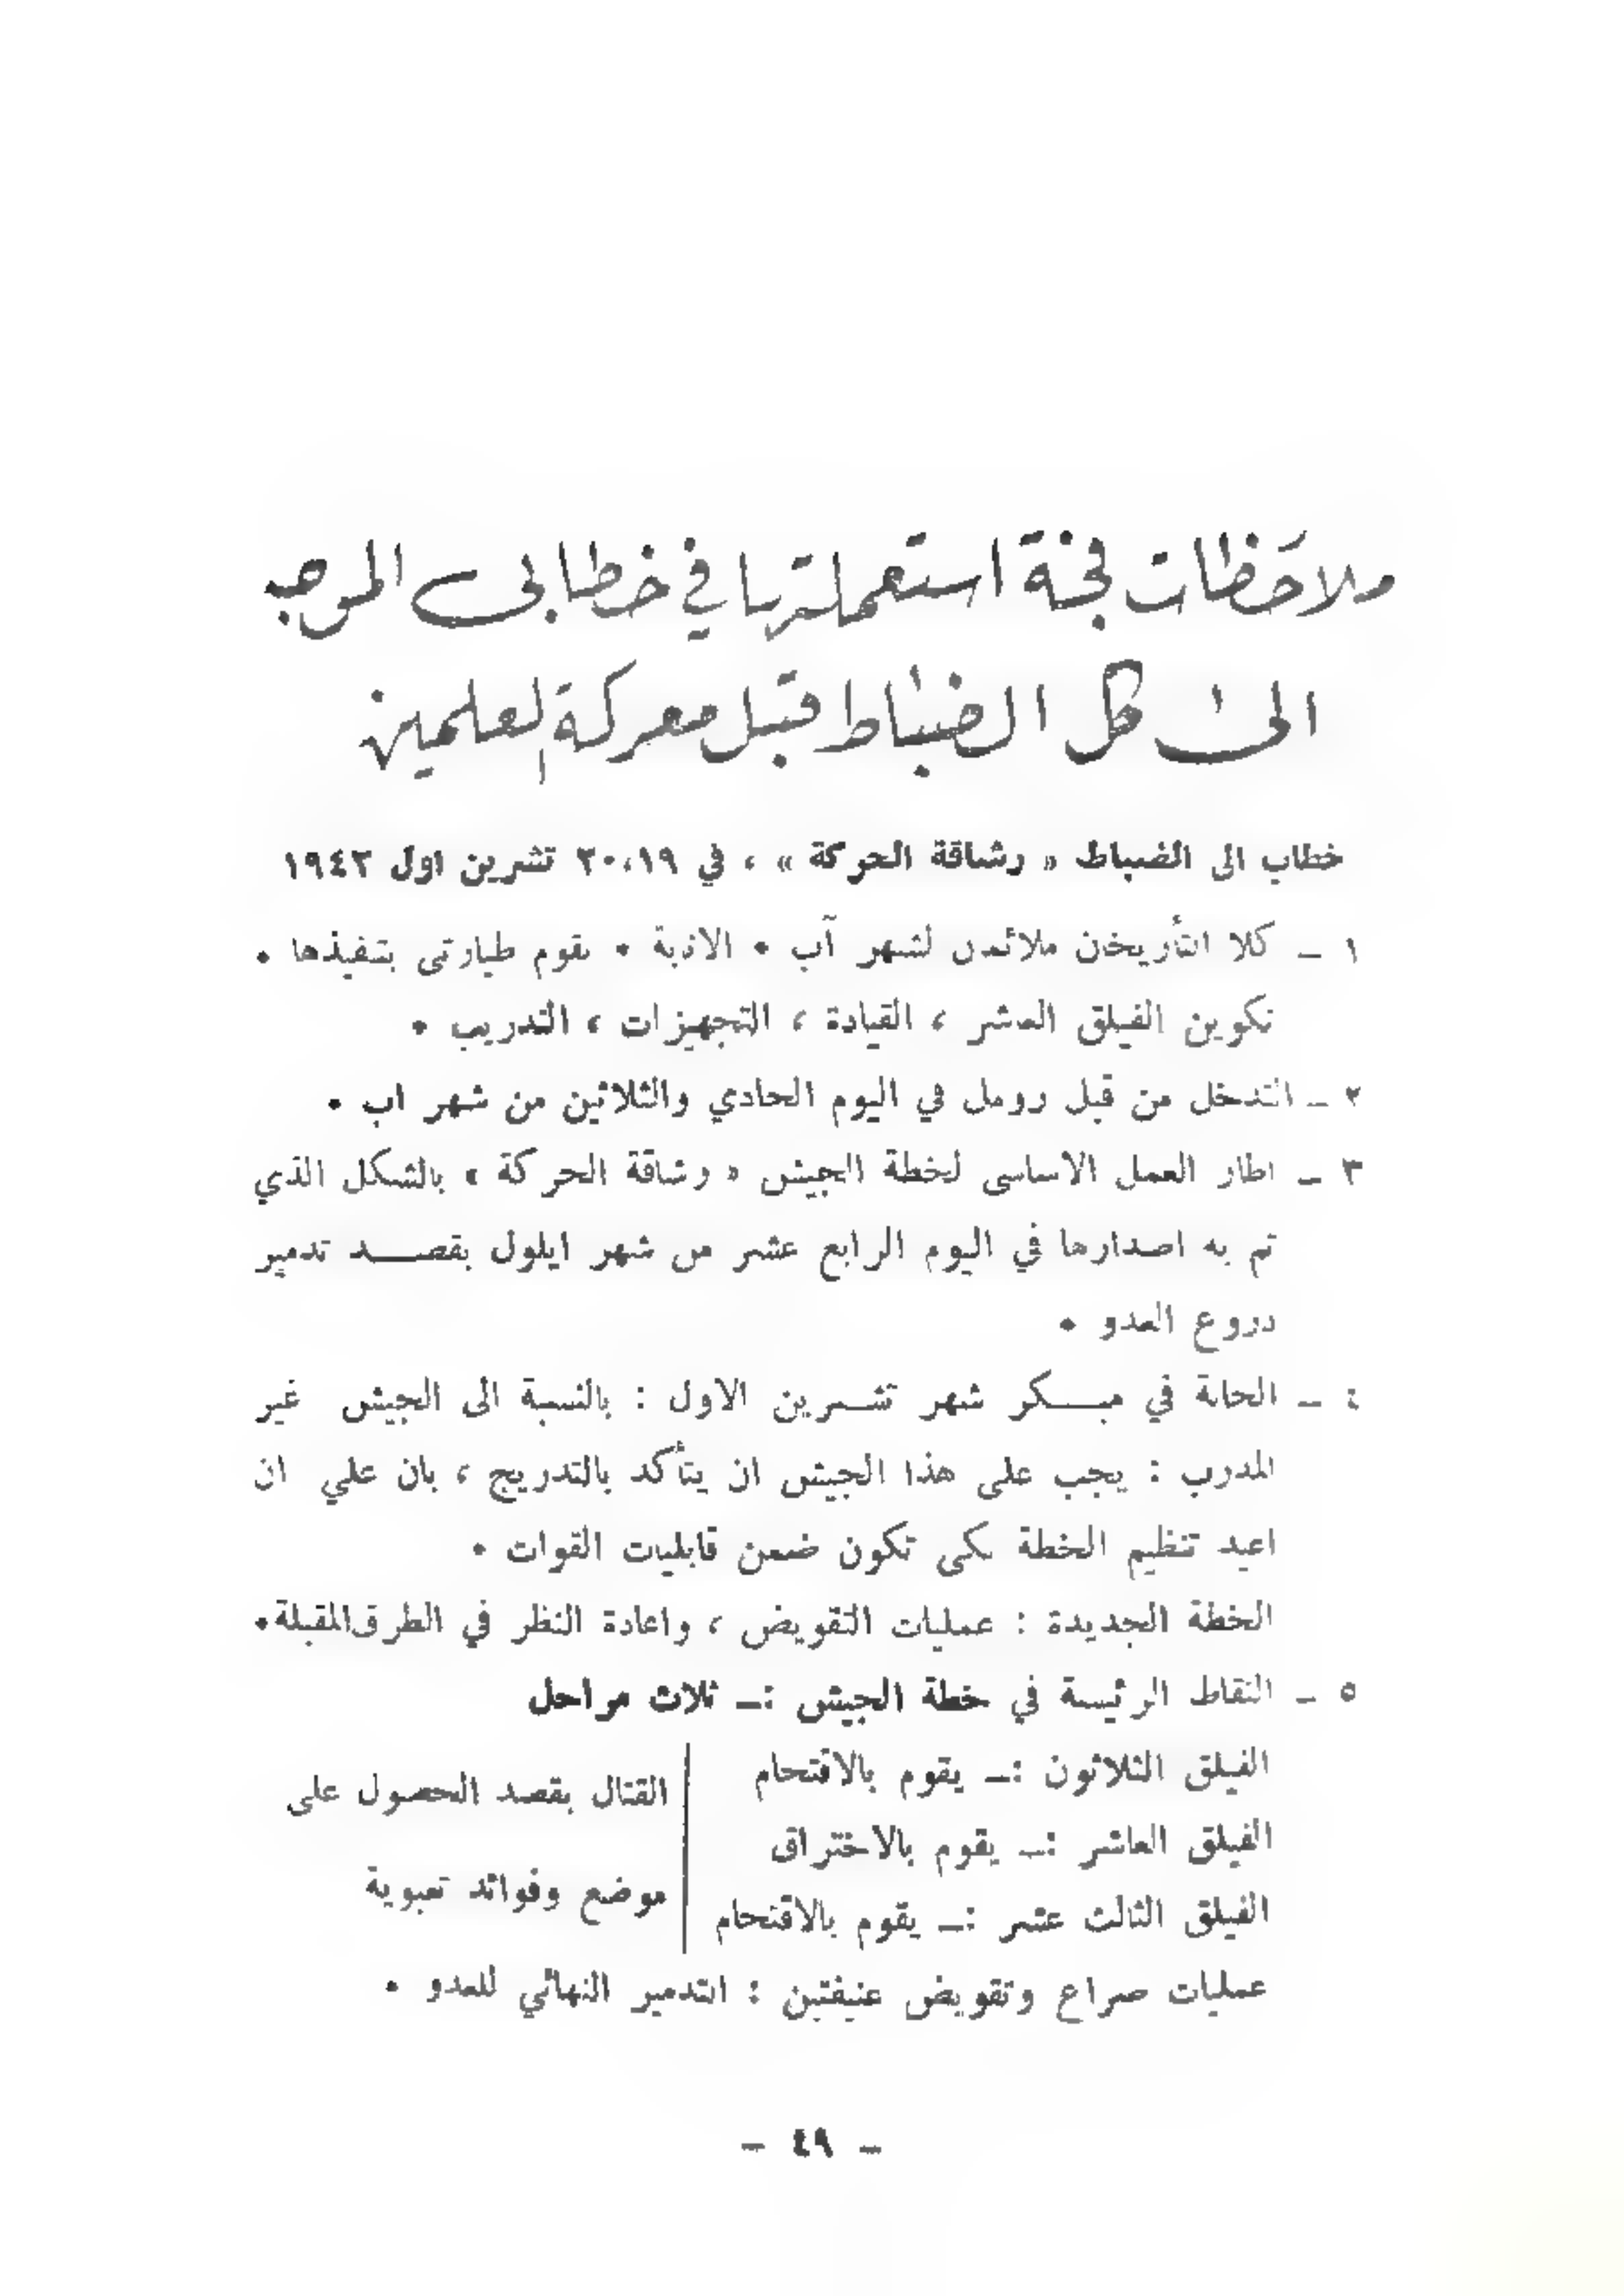 ملاحظات فجة استعملتها في خطابي الموجه
الى كل الضباط قبل معركة العلمين
خطاب الى الضباط « رشاقة الحركة » ، في ٢٠،١٩ تشرين اول ١٩٤٢
١ ـ كلا التأريخان ملائمان لشهر آب • الاذية • تقوم طيارتي بتنفيذها •
تكوين الفيلق العاشر ، القيادة ، التجهيزات ، التدريب •
٢ ـ التدخل من قبل رومل في اليوم الحادي والثلاثين من شهر اب •
٣ ـ اطار العمل الاساسي لخطة الجيش « رشاقة الحركة » بالشكل الذي
تم به اصدارها في اليوم الرابع عشر من شهر ايلول بقصد تدمير
دروع العدو •
٤ ـ الحالة في مبكر شهر تشرين الاول : بالنسبة الى الجيش غير
المدرب : يجب على هذا الجيش ان يتأكد بالتدريج ، بان علي ان
اعيد تنظيم الخطة لكي تكون ضمن قابليات القوات •
الخطة الجديدة : عمليات التقويض ، واعادة النظر في الطرق المقبلة •
٥ ـ النقاط الرئيسة في خطة الجيش :ـ ثلاث مراحل
الفيلق الثلاثون :ـ يقوم بالاقتحام
الفيلق العاشر :ـ يقوم بالاختراق
الفيلق الثالث عشر :ـ يقوم بالاقتحام
القتال بقصد الحصول على
موضع وفوائد تعبوية
عمليات صراع وتقويض عنيفتين : التدمير النهائي للعدو •
ـ ٤٩ ـ